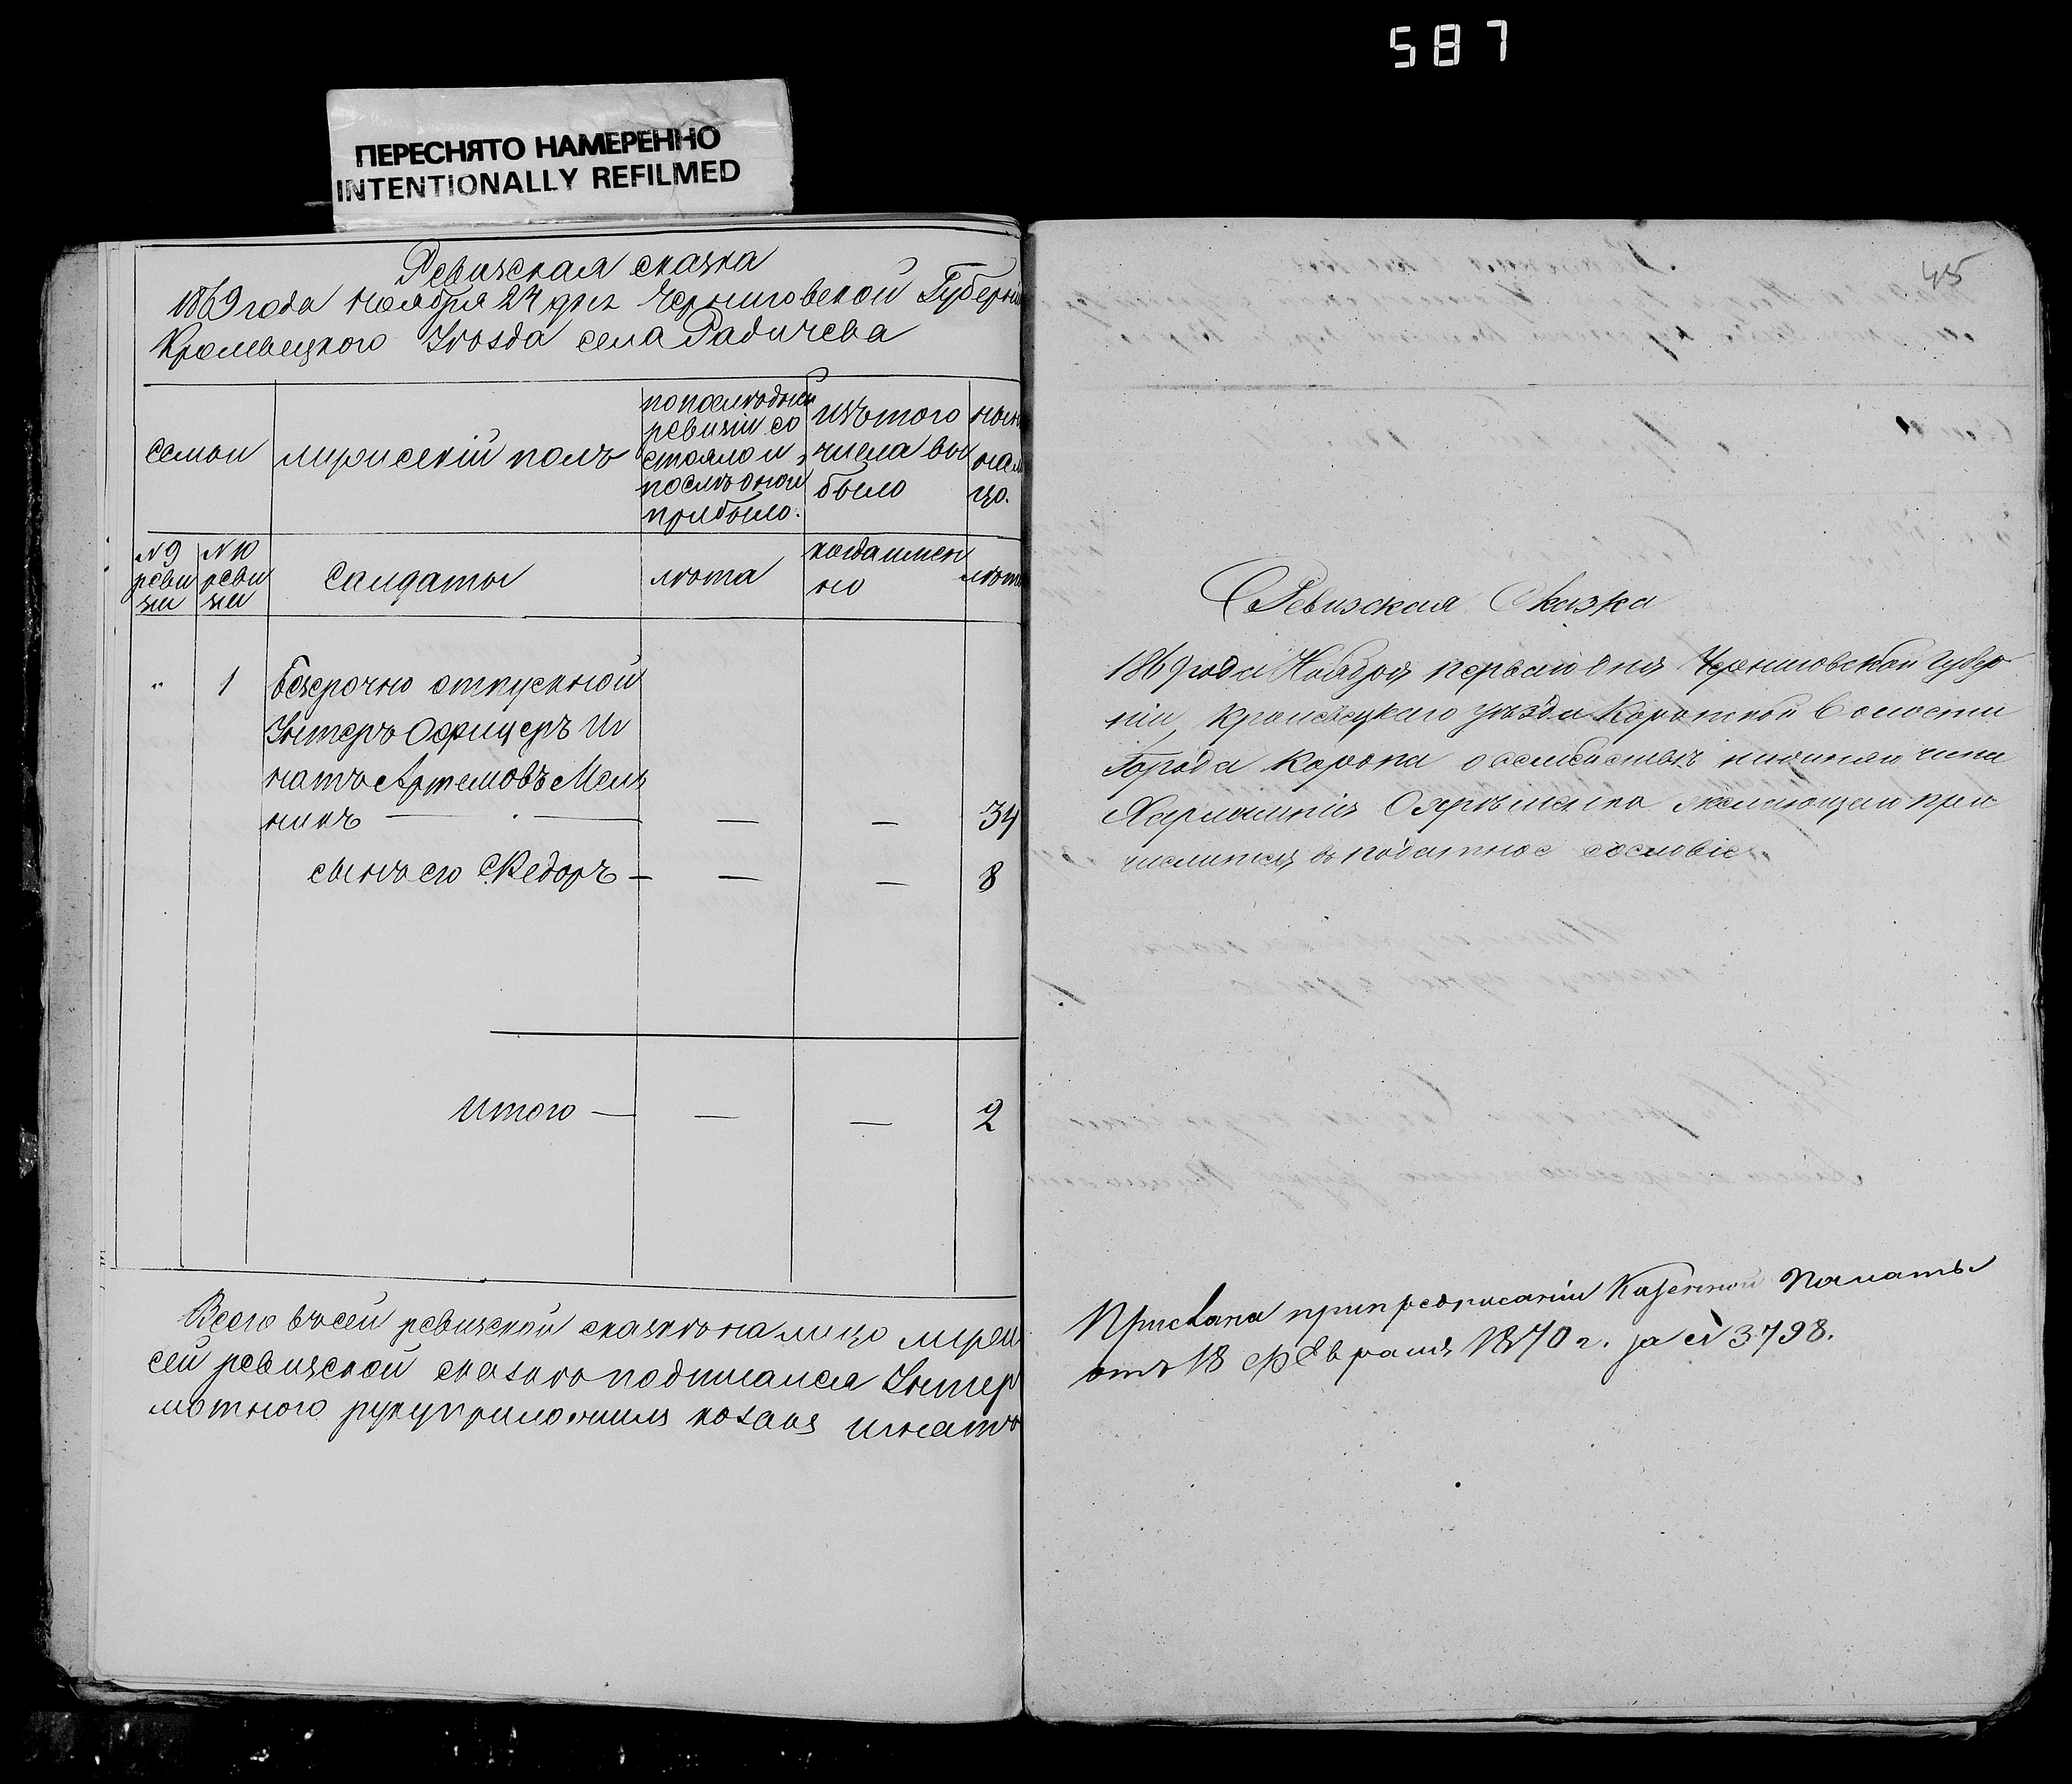 587
ПЕРЕСНЯТО НАМЕРЕННО
INTENTIONALLY REFILMED
Ревизская сказка
1869 года ноября 24 дня Черниговской Губерніи
Кролевецкого Уѣзда села Радичева
семьи
мужескій полъ
по послѣдней
ревизіи со
стояло и
послѣ оной
прибыло.
изъ того
числа вы
было
ныне
на ли
цо.
№ 9
реви
зіи
№ 10
реви
зіи
Салдаты
лѣта
когда имен
но
лѣта
" 1 безсрочно отпускной
Унтеръ Офицеръ Иг
натъ Артемовъ Мель
никъ — — — 34
сынъ его Федоръ — — — 8
Итого — — — 2
Всего въ сей ревизской сказкѣ на лицо
сей ревизской сказкѣ подписался Унтер
мотного руку приложилъ козакъ Игнатъ
45
Ревизская Сказка
1869 года Ноября первого дня Черниговской губер
ніи, Кролевецкаго уѣзда Коропской волости
Города Коропа о семействѣ нижняго чина
желающаго при
числится в податное сословіе
Прислана при предписаніи Казенной Палаты
отъ 18 Февраля 1870 г. за № 3798.